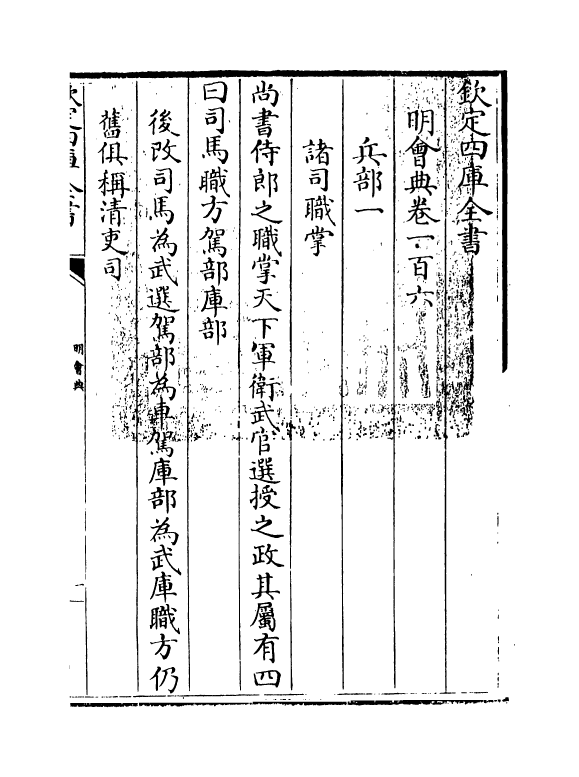 欽定四庫全書
明會典卷一百六
兵部一
諸司職掌
尚書侍郎之職掌天下軍衛武官選授之政其屬有四
曰司馬職方駕部庫部
後改司馬為武選駕部為車駕庫部為武庫職方仍
舊俱稱清吏司
欽定四庫全書
明會典
一